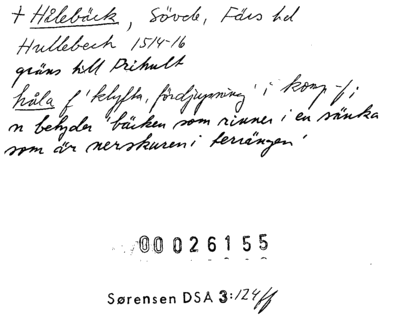 + Hålebäck, Sövde, Färs hd
Hullebeck 1514-16
gräns till Prihult
håla f 'klyfta, fördjupning' i komp-f;
n betyder 'bäcken som rinner i en sänka
som är nerskuren i terrängen'
00026155
Sørensen DSA 3:124ff